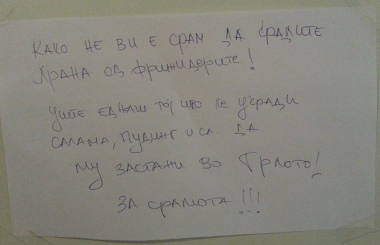 Како не ви е срам да крадите
храна од фрижидерите!
Уште еднаш тој што ќе укради
салама, пудинг и сл. да
му застани во грлото!
За срамота!!!